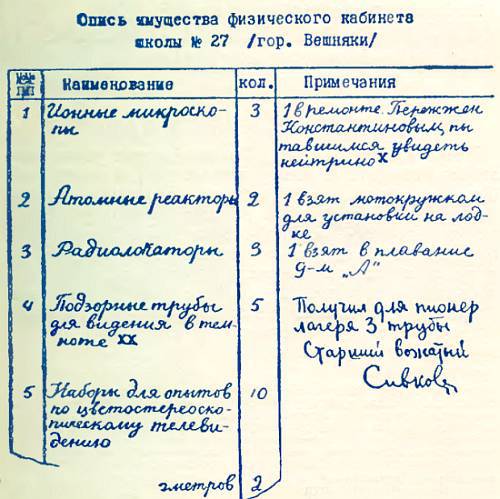 Опись имущества физического кабинета
школы № 27 /гор. Вешняки/
№№ пп Наименование кол. Примечания
1 Ионные микроско- 3 1 в ремонте. Пережжен
пы Константиновым, пы
тавшимся увидеть
нейтрино x
2 Атомные реакторы 2 1 взят мотокружком
для установки на лод-
ке
3 Радиолокаторы 3 1 взят в плавание
9-м „А"
4 Подзорные трубы 5 Получил для пионер
для видения в тем- лагеря 3 трубы
ноте xx Старший вожатый
Сивков
5 Наборы для опытов 10
по цветостереоско-
пическому телеви-
дению
метров 2